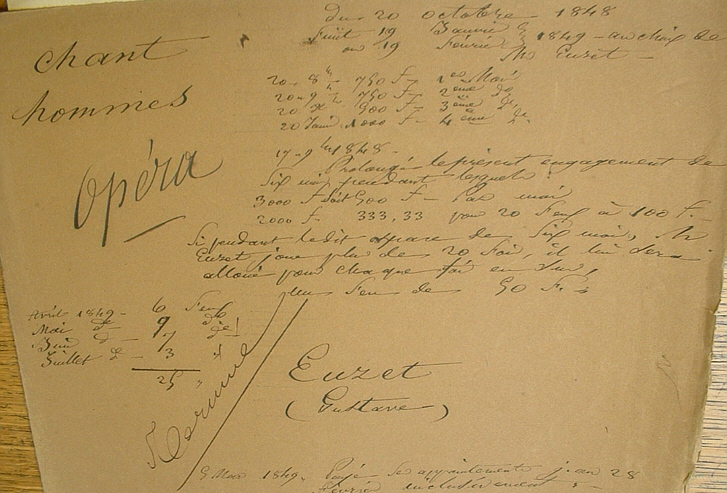 du 20 octobre 1848
finit 19 Janvier 1849 - au choix de
ou 19 Février Mr Euzet -
chant
hommes
Opéra
20. 8bre 750 f. 1er Mois
20. 9bre 750 f. 2eme do
20 Xbre 900 f. 3ème do
20 Janv. 1000 f - 4ème do
17 - 9bre 1848 -
Prolongé le présent engagement de
Six mois pendant lesquels :
3000 f soit 500 f - Par mois
2000 f. 333,33 pour 20 Feux à 100 f. -
Si pendant ledit espace de Six mois, Mr
Euzet, joue plus de 20 fois, il lui sera
alloué pour chaque fois en sus,
un Feu de 50 F.
Avril 1849 - 6 Feux
Mai do - 9 do
Juin do - 7 do
Juillet do - 3
25
Terminé
Euzet
(Gustave)
9 Mars 1849. Payé les appointements jusqu'au 28
février inclusivement